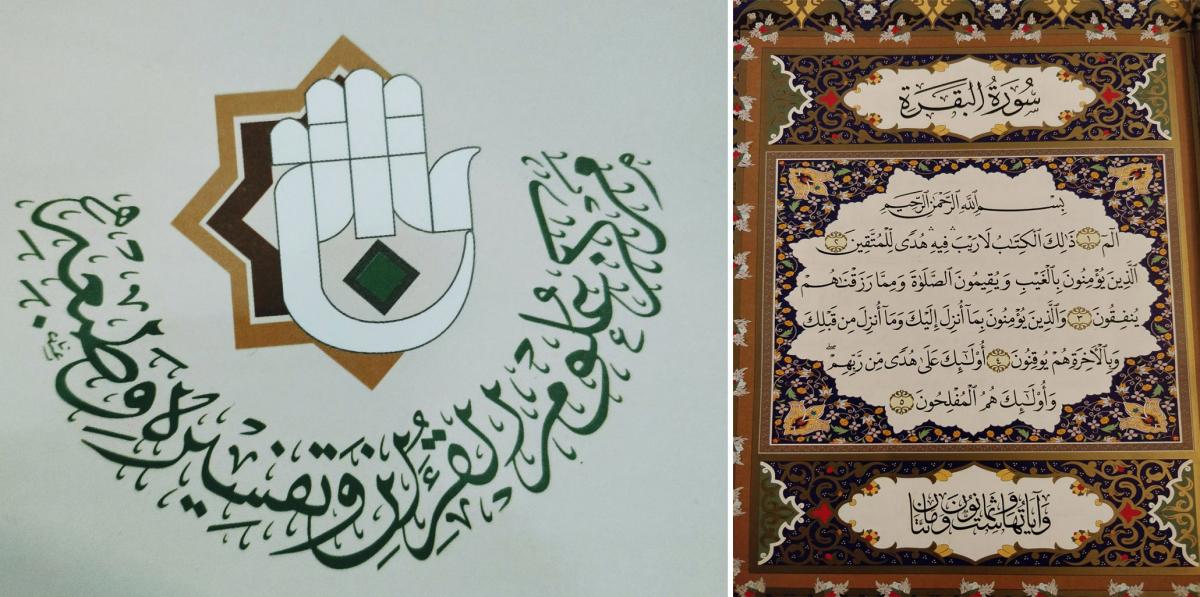 مركز علوم القرءان وتفسيره وطبعه
سُورَةُ البَقَرَةِ
بِسْمِ اللَّهِ الرَّحْمَٰنِ الرَّحِيمِ
الٓمٓ ١ ذَٰلِكَ الْكِتَابُ لَا رَيْبَ ۛ فِيهِ ۛ هُدًى لِلْمُتَّقِينَ ٢
الَّذِينَ يُؤْمِنُونَ بِالْغَيْبِ وَيُقِيمُونَ الصَّلَاةَ وَمِمَّا رَزَقْنَاهُمْ
يُنْفِقُونَ ٣ وَالَّذِينَ يُؤْمِنُونَ بِمَا أُنْزِلَ إِلَيْكَ وَمَا أُنْزِلَ مِنْ قَبْلِكَ
وَبِالْآخِرَةِ هُمْ يُوقِنُونَ ٤ أُولَٰئِكَ عَلَىٰ هُدًى مِنْ رَبِّهِمْ ۖ
وَأُولَٰئِكَ هُمُ الْمُفْلِحُونَ ٥
وَآيَاتُهَا سِتٌّ وَثَمَانُونَ وَمِائَتَانِ